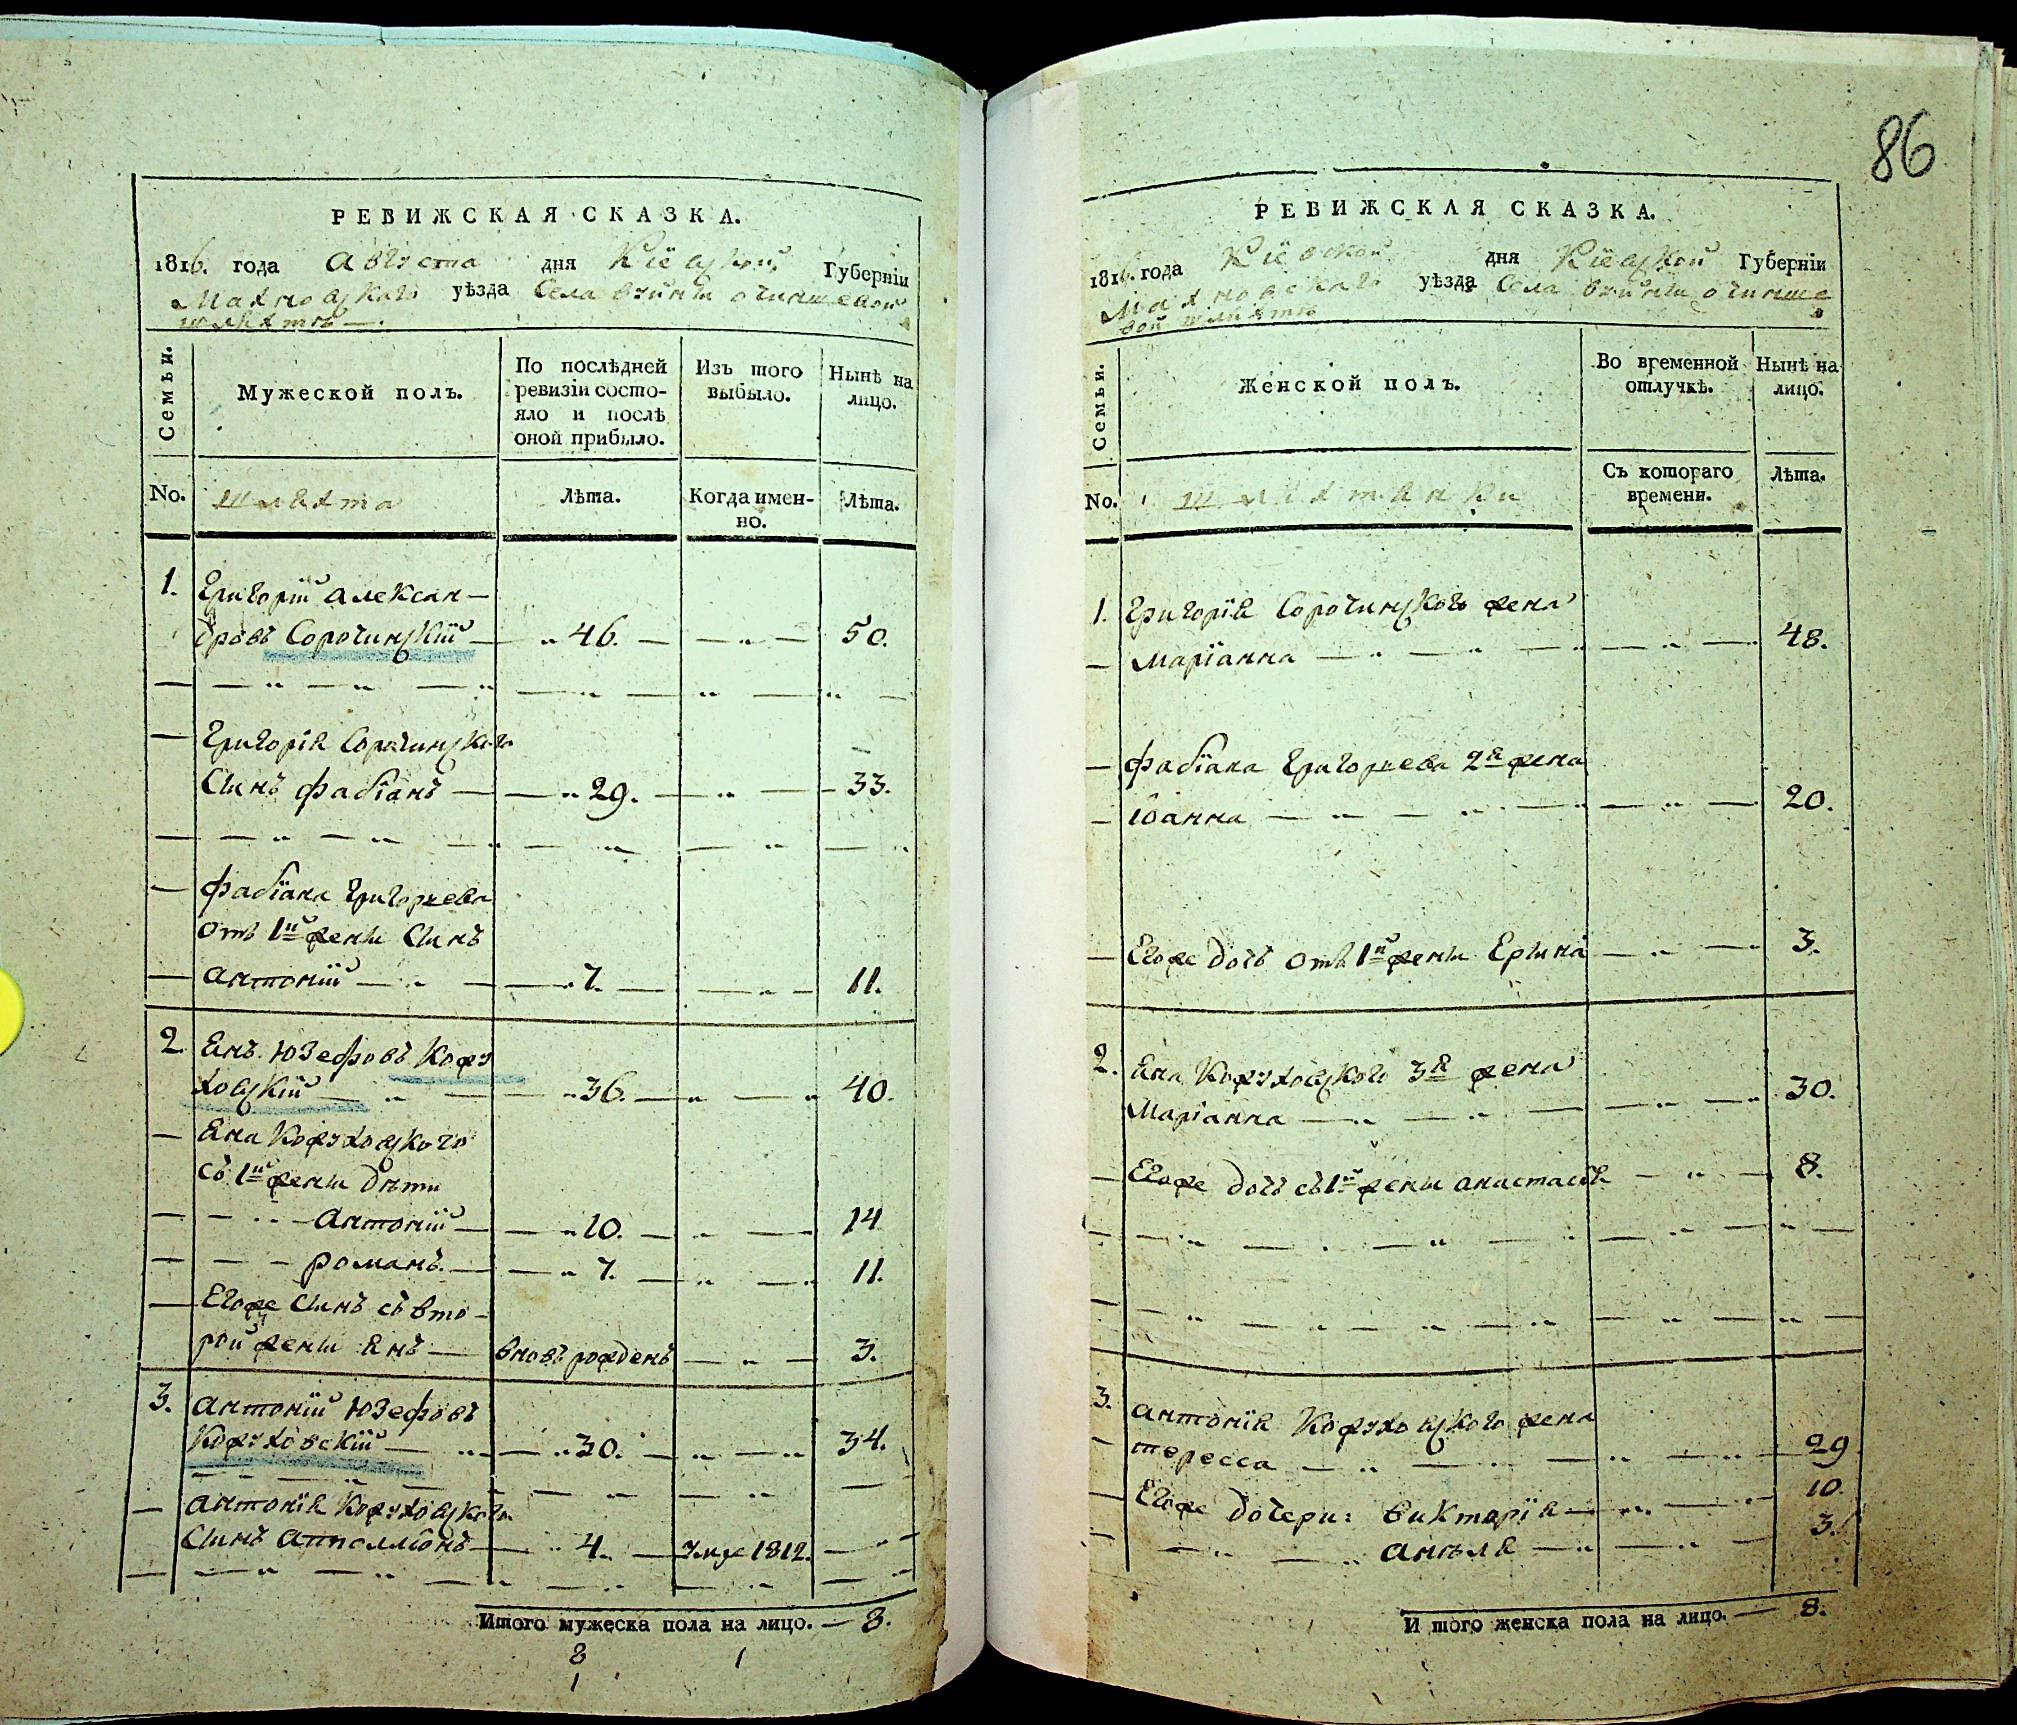 86
РЕВИЖСКАЯ СКАЗКА.
1816. года Августа дня Кіевской Губерніи
Махновскаго уѣзда Села очиншевой
шляхтѣ —.
Семьи.
Мужеской полъ.
По послѣдней ревизіи состояло и послѣ оной прибыло.
Изъ того выбыло.
Нынѣ на лицо.
No. шляхта Лѣта. Когда именно. Лѣта.
1. Григорій Алексан-
дровъ Сорочинскій — 46. — — 50.
Григорія Сорочинскаго
Синъ Фабіанъ — 29. — — 33.
Фабіана Григорьева
отъ 1й жены Синъ
Антоній — 7. — — 11.
2. Янъ Юзефовъ Кожу
ховскій — 36. — — 40.
— Яна Кожуховского
съ 1й жены дѣти
— Антоній — 10. — — 14
— романъ — 7. — — 11.
— Егоже Синъ съ вто-
рой жены Янъ — вновь рожденъ — — 3.
3. Антоній Юзефовъ
Кожуховскій — 30. — — 34.
— Антонія Кожуховского
Синъ Апполліонъ — 4. — умре 1812. —
Итого мужеска пола на лицо. — 8.
8 1
1
РЕВИЖСКАЯ СКАЗКА.
1816. года Кіевской дня Кіевской Губерніи
Махновскаго уѣзда Села очинше
вой шляхтѣ
Семьи.
Женской полъ.
Во временной отлучкѣ.
Нынѣ на лицо.
No. шляхтянки Съ котораго времени. Лѣта.
1. Григорія Сорочинского жена
— Маріанна — 48.
— Фабіана Григорьева 2я жена
— Іоанна — 20.
— Егоже дочь отъ 1й жены Ерина — 3.
2. Яна Кожуховского 3я жена
Маріанна — 30.
— Егоже дочь съ 1й жены анастасія — 8.
3. Антонія Кожуховского жена
— тересса — 29
— Егоже дочери: Викторія — 10.
— Анѣля — 3.
И того женска пола на лицо. — 8.